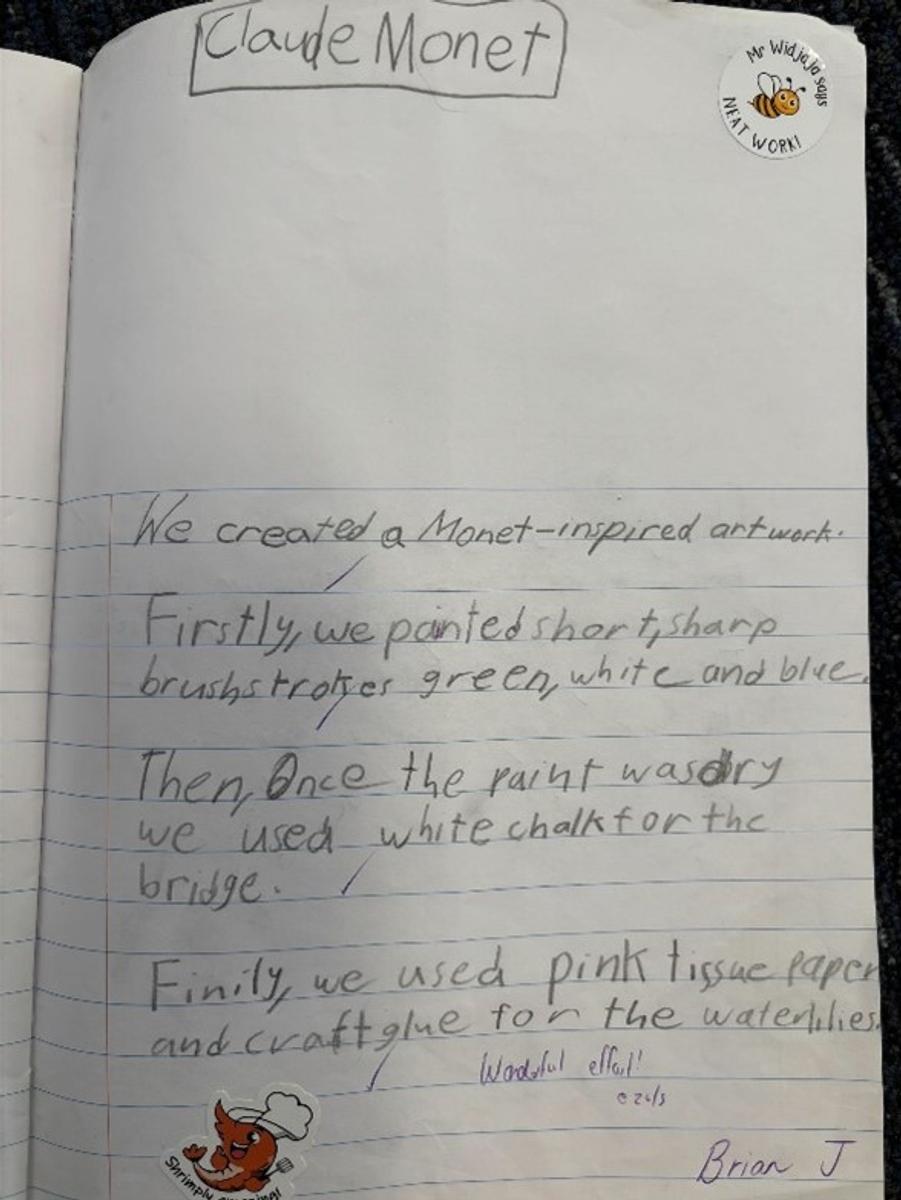 Claude Monet
Mr Widjaja says
NEAT WORK!
We created a Monet-inspired artwork.
Firstly, we painted short, sharp
brushstrokes green, white and blue.
Then, Once the paint was dry
we used white chalk for the
bridge.
Finily, we used pink tissue paper
and craft glue for the waterlilies.
Wonderful effort!
Shrimply
Brian J